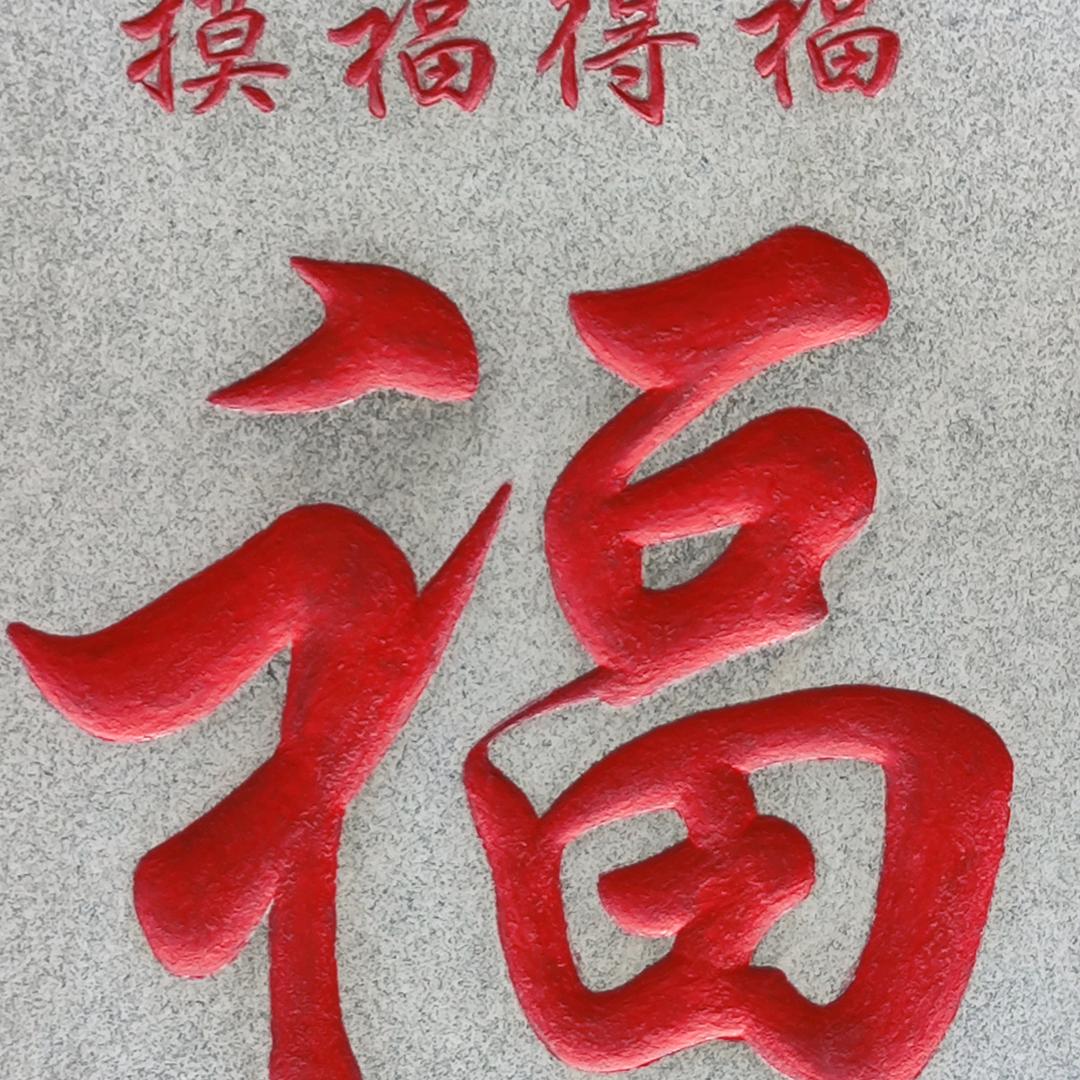 摸福得福
福